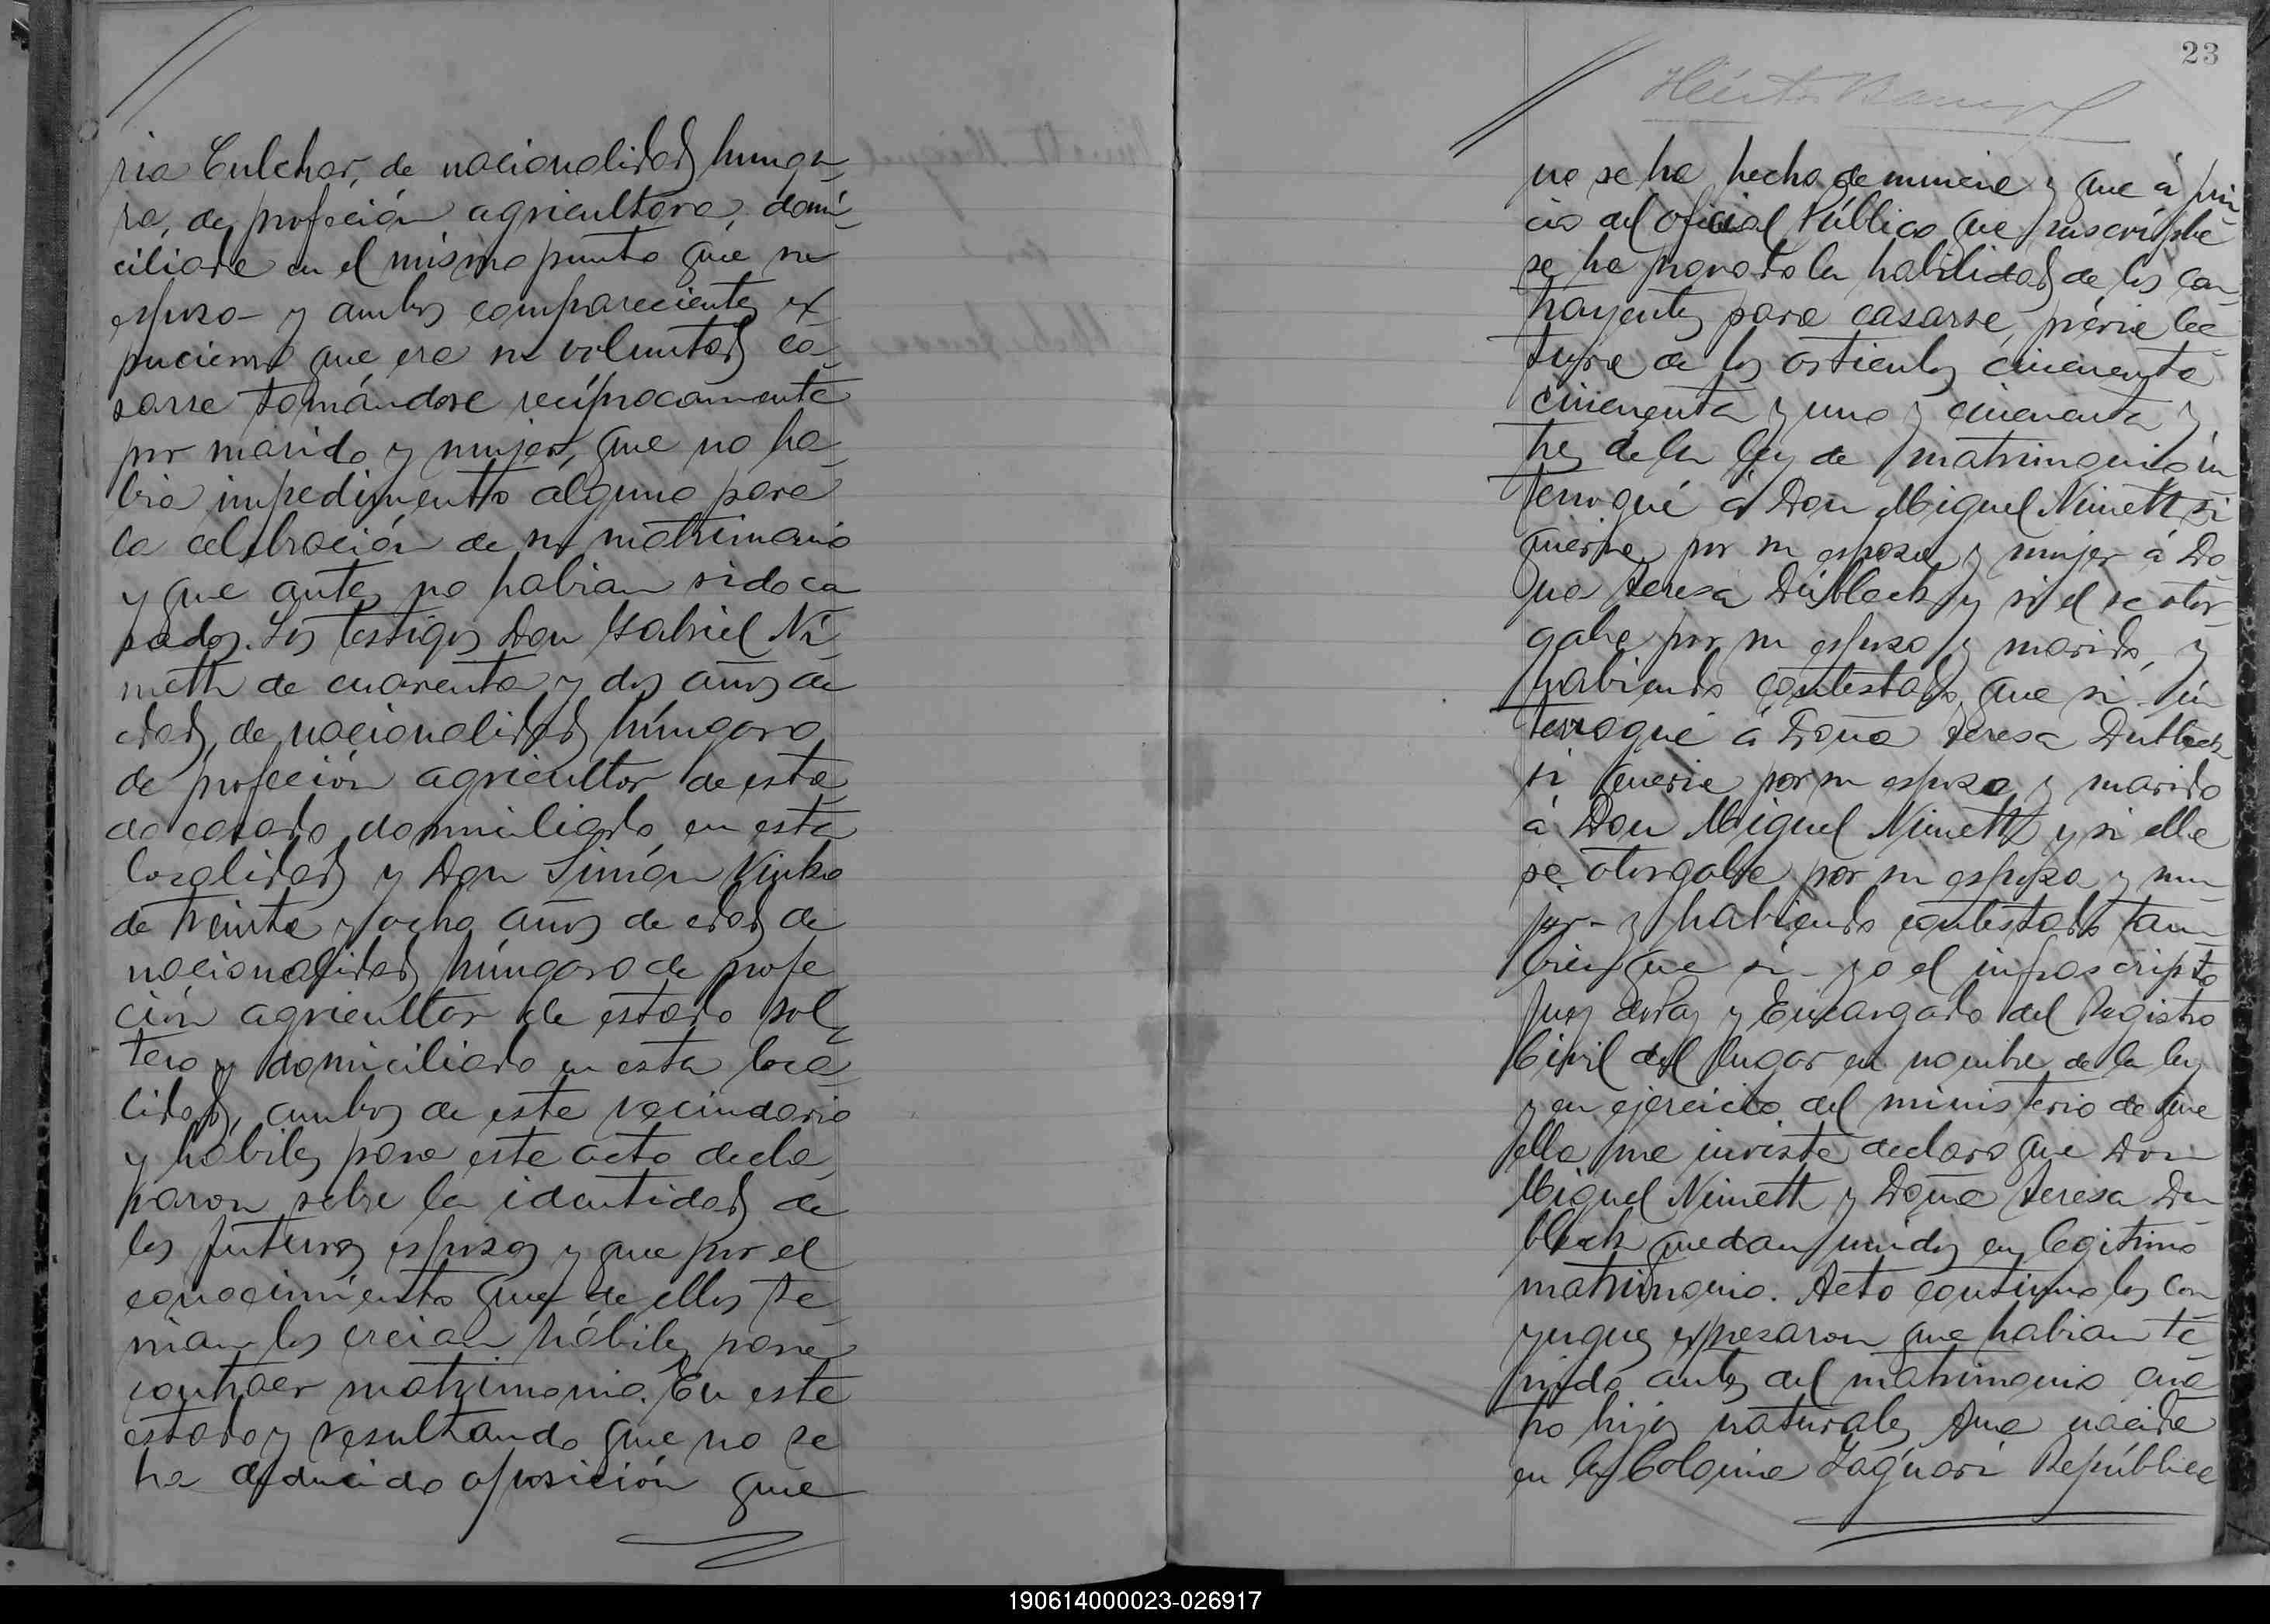 ria Culchar, de nacionalidad hunga-
ra, de profeción agricultora, domi-
ciliada en el mismo punto que su
esposo - y ambos comparecientes ex-
pucieron que era su voluntad ca-
sarse tomándose recíprocamente
por marido y mujer, que no ha-
bia impedimento alguno para
la celebración de su matrimonio
y que antes no habian sido ca
sados. Los testigos Don Gabriel Ni-
meth de cuarenta y dos años de
edad, de nacionalidad húngara
de profeción agricultor de esta-
do casado domiciliado en esta
localidad y Don Simón Vinko
de treinta y ocho años de edad de
nacionalidad húngara de profe
ción agricultor de estado sol-
tero y domiciliado en esta loca-
lidad, ambos de este vecindario
y hábiles para este acto decla-
raron sobre la identidad de
los futuros esposos y que por el
conocimiento que de ellos te-
nian los creian hábiles para
contraer matrimonio. En este
estado y resultando que no se
ha deducido oposición que
23
Héctor
no se ha hecho denuncia y que á jui-
cio del oficial Público que suscribe
se ha provado la habilidad de los con-
trayentes para casarse, prévia lec-
tura de los articulos cincuenta
cincuenta y uno y cincuenta y
tres de la ley de matrimonio in
terrogué á Don Miguel Nimeth si
queria por su esposa y mujer á Do-
ña Teresa Dublech y si el se otor-
gaba por su esposo y marido, y
habiendo contestado que si - in
terrogué á Doña Teresa Dublech
si queria por su esposo y marido
á Don Miguel Nimeth y si ella
se otorgaba por su esposa y mu-
jer - y habiendo contestado tam-
bien que si - yo el infrascripto
Juez de Paz y Encargado del Registro
Civil del lugar en nombre de la ley
y en ejercicio del ministerio de que
ella me inviste declaro que Don
Miguel Nimeth y Doña Teresa Du
blech quedan unidos en legitimo
matrimonio. Acto continuo los con
yuques expresaron que habian te
nido antes del matrimonio cua
tro hijos naturales Ana nacida
en la Colonia Jaguari República
190614000023-026917